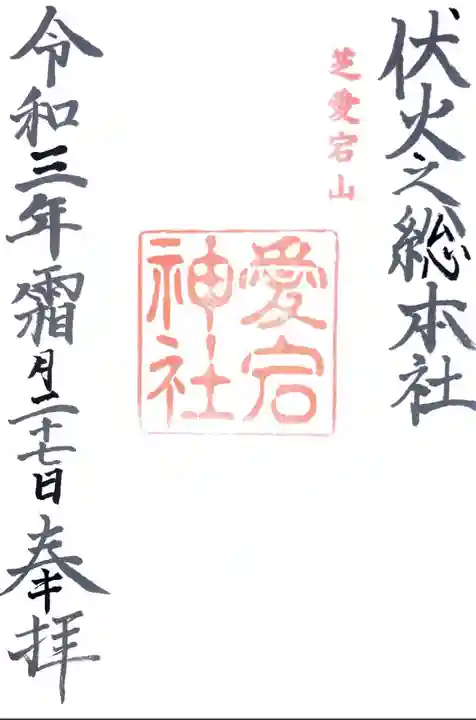 伏火之総本社
芝愛宕山
愛宕
神社
令和三年霜月二十七日奉拝